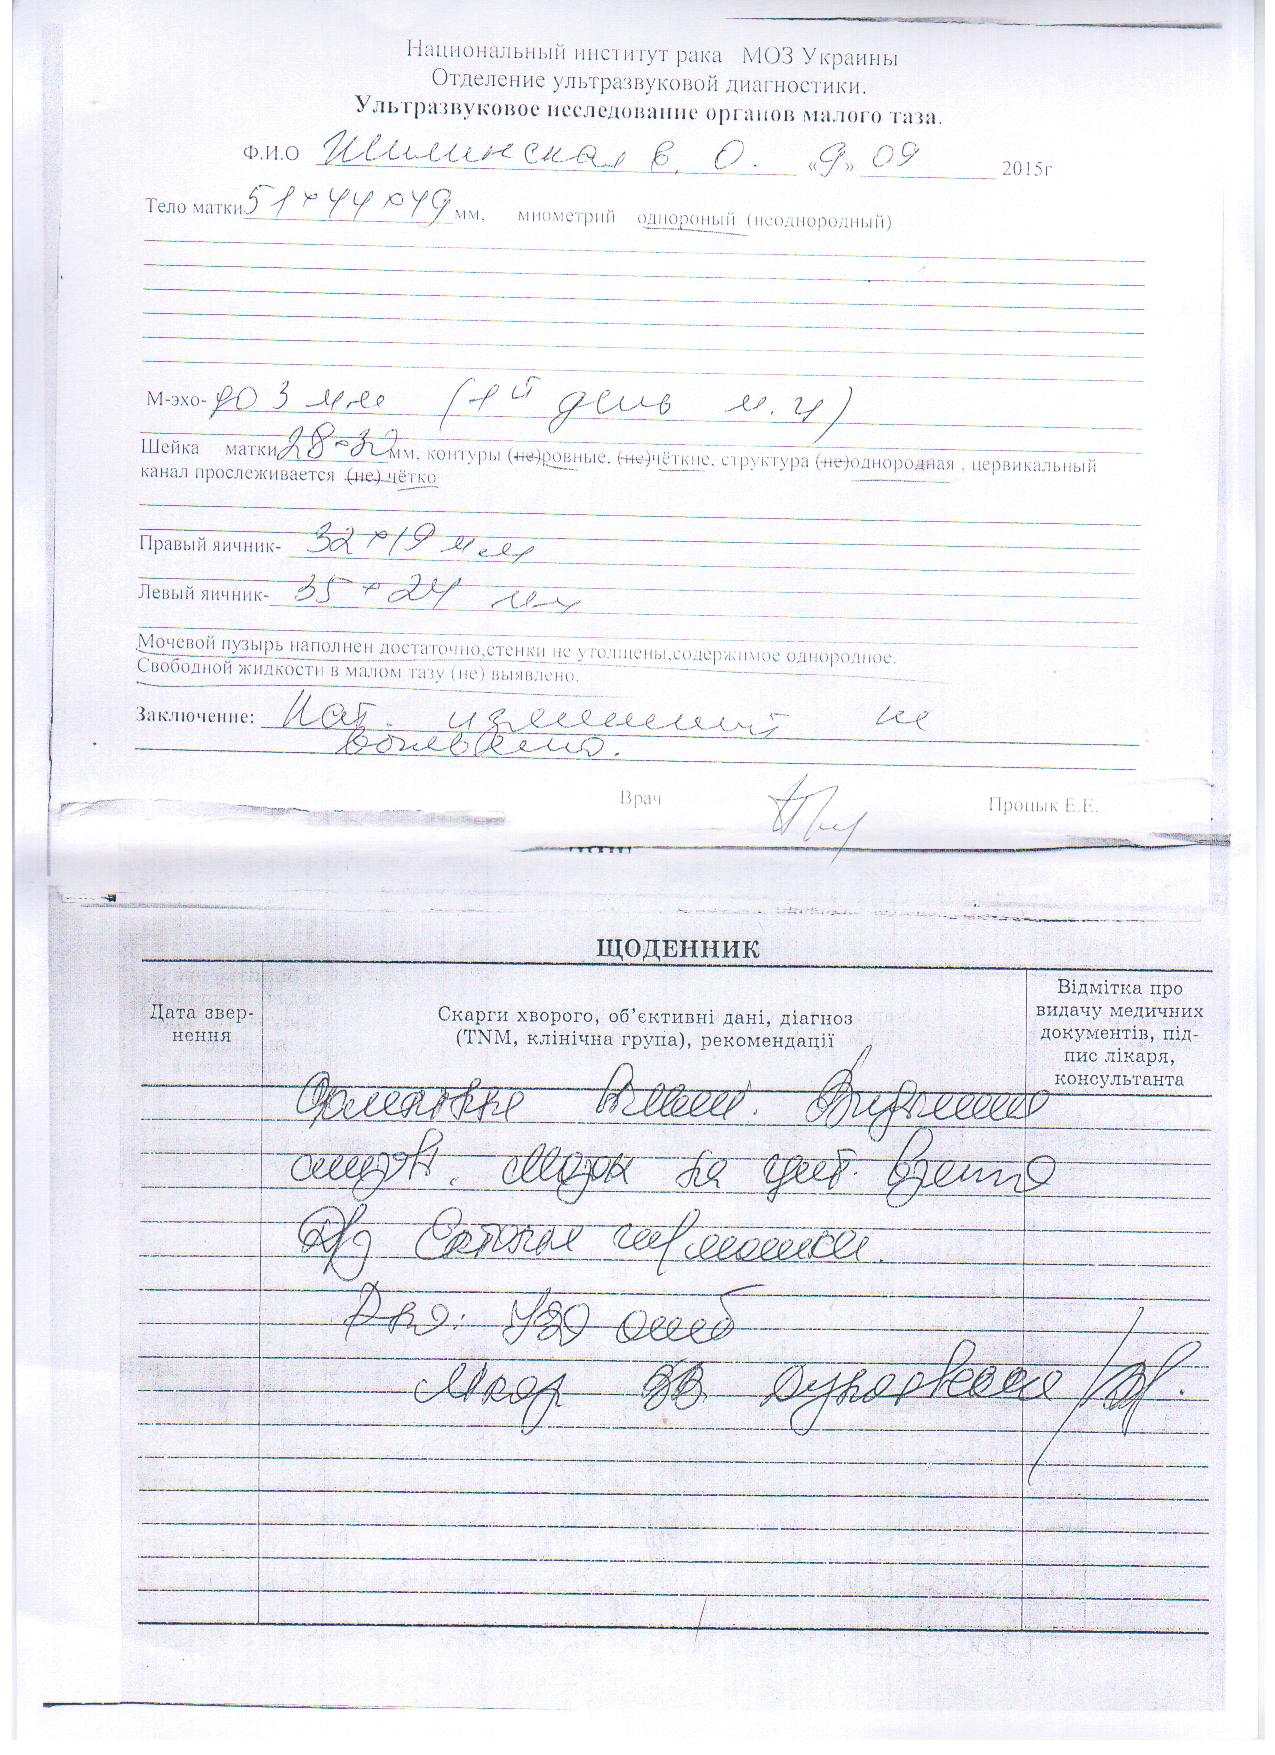 Национальный институт рака МОЗ Украины
Отделение ультразвуковой диагностики.
Ультразвуковое исследование органов малого таза.
Ф.И.О Шилинская В. О. «9» 09 2015г
Тело матки 51×44×49 мм, миометрий однороный (неоднородный)
М-эхо- до 3 мм (1й день м.ц)
Шейка матки 28×32 мм, контуры (не)ровные, (не)чёткие, структура (не)однородная , цервикальный
канал прослеживается (не) чётко
Правый яичник- 32×19 мм
Левый яичник- 35×24 мм
Мочевой пузырь наполнен достаточно,стенки не утолщены,содержимое однородное.
Свободной жидкости в малом тазу (не) выявлено.
Заключение: Пат. изменений не
выявлено.
Врач Процык Е.Е.
ЩОДЕННИК
Дата звер-
нення
Скарги хворого, об’єктивні дані, діагноз
(TNM, клінічна група), рекомендації
Відмітка про
видачу медичних
документів, під-
пис лікаря,
консультанта
на цит. взято
Ds
УЗД ОМТ
Лікар